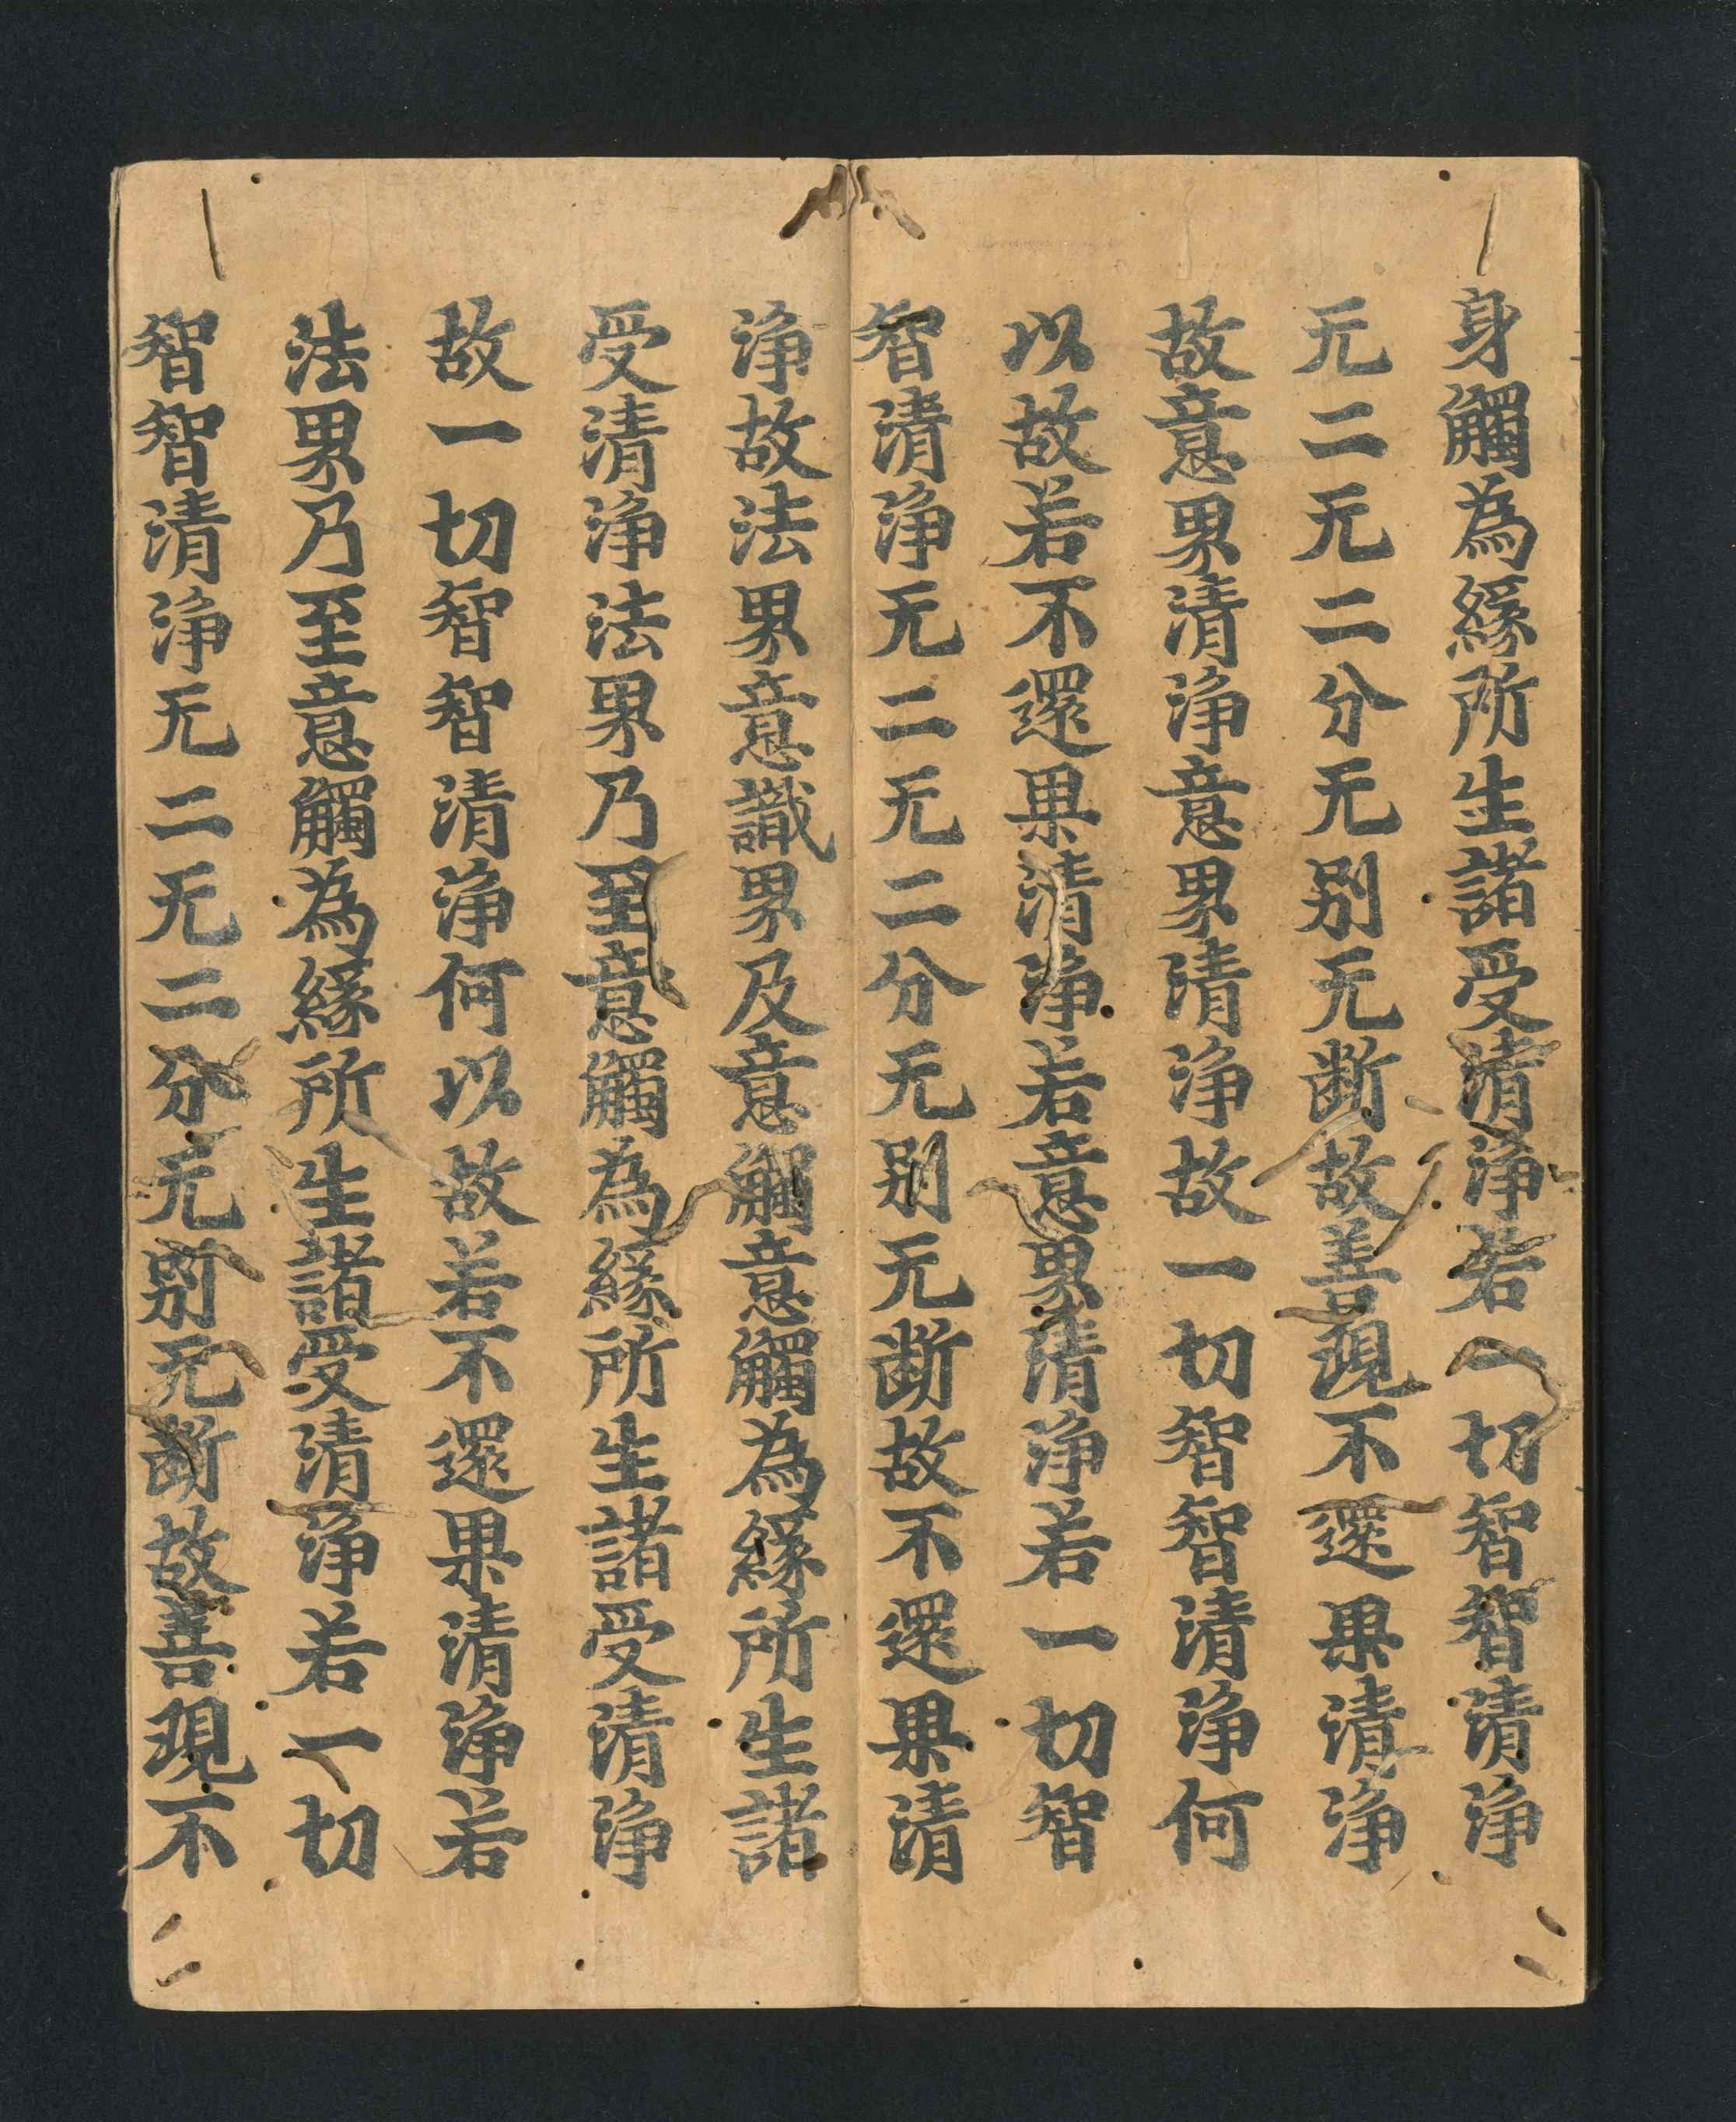 身觸為緣所生諸受清淨若一切智智清淨
无二无二分无别无断故善現不還果清淨
故意界清淨意界清淨故一切智智清淨何
以故若不還果清淨若意界清淨若一切智
智清淨无二无二分无别无断故不還果清
淨故法界意識界及意觸意觸為緣所生諸
受清淨法界乃至意觸為緣所生諸受清淨
故一切智智清淨何以故若不還果清淨若
法界乃至意觸為緣所生諸受清淨若一切
智智清淨无二无二分无别无断故善現不